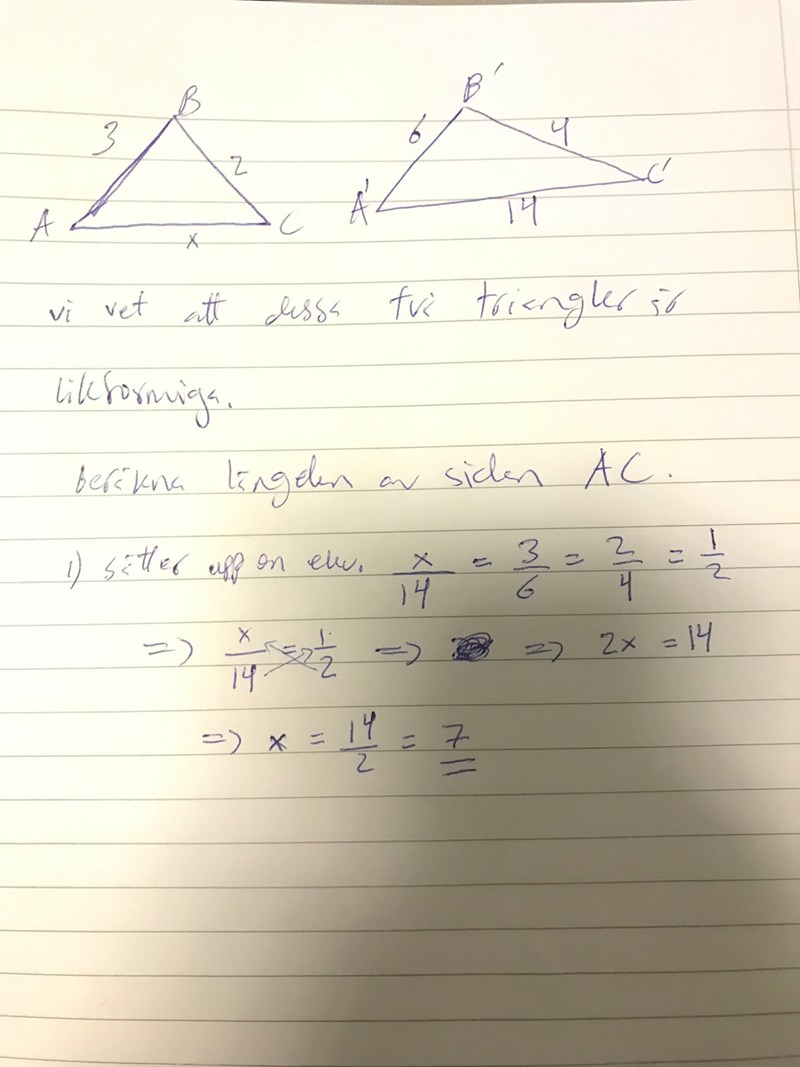 B B'
3 2 6 4
A x C A' 14 C'
vi vet att dessa två triangler är
likformiga.
beräkna längden av sidan AC.
1) sätter upp en ekv. x/14 = 3/6 = 2/4 = 1/2
=> x/14 = 1/2 => => 2x = 14
=> x = 14/2 = 7